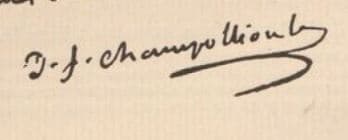 J. f. Champollion le